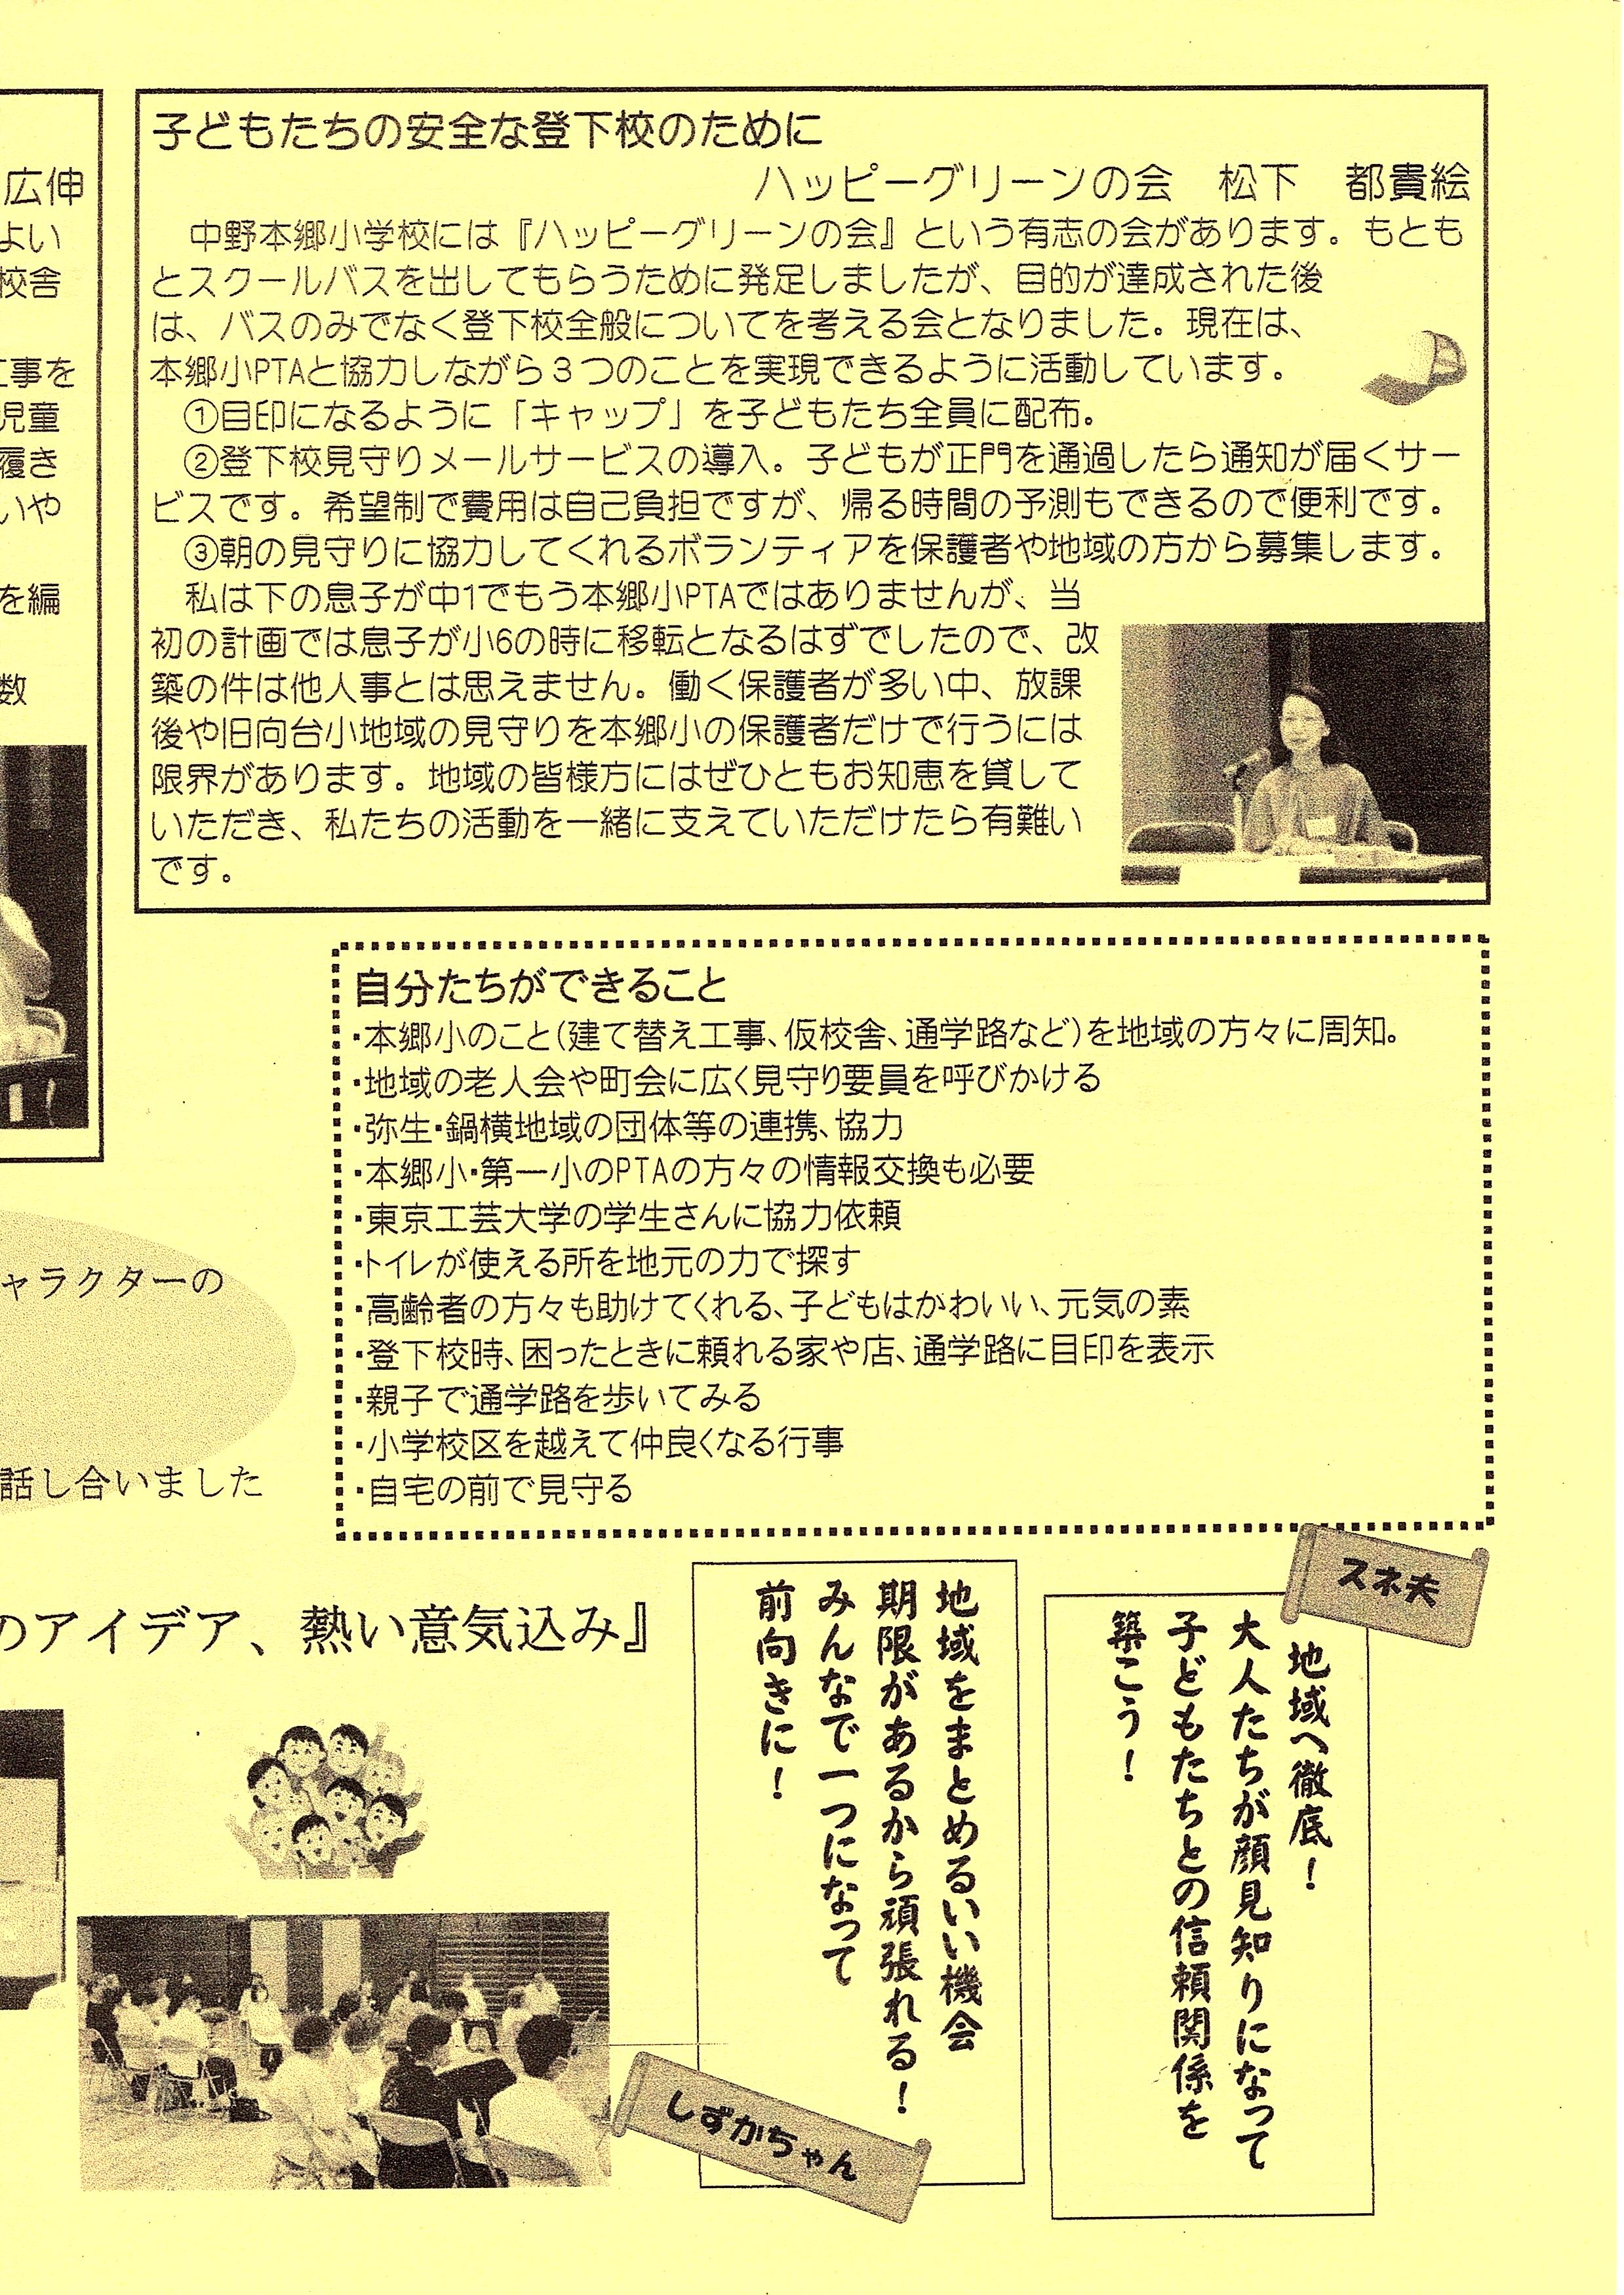 広伸
よい
校舎
工事を
児童
履き
いや
を編
数
子どもたちの安全な登下校のために
ハッピーグリーンの会　松下　都貴絵
中野本郷小学校には『ハッピーグリーンの会』という有志の会があります。もとも
とスクールバスを出してもらうために発足しましたが、目的が達成された後
は、バスのみでなく登下校全般についてを考える会となりました。現在は、
本郷小PTAと協力しながら３つのことを実現できるように活動しています。
①目印になるように「キャップ」を子どもたち全員に配布。
②登下校見守りメールサービスの導入。子どもが正門を通過したら通知が届くサー
ビスです。希望制で費用は自己負担ですが、帰る時間の予測もできるので便利です。
③朝の見守りに協力してくれるボランティアを保護者や地域の方から募集します。
私は下の息子が中1でもう本郷小PTAではありませんが、当
初の計画では息子が小6の時に移転となるはずでしたので、改
築の件は他人事とは思えません。働く保護者が多い中、放課
後や旧向台小地域の見守りを本郷小の保護者だけで行うには
限界があります。地域の皆様方にはぜひともお知恵を貸して
いただき、私たちの活動を一緒に支えていただけたら有難い
です。
自分たちができること
・本郷小のこと（建て替え工事、仮校舎、通学路など）を地域の方々に周知。
・地域の老人会や町会に広く見守り要員を呼びかける
・弥生・鍋横地域の団体等の連携、協力
・本郷小・第一小のPTAの方々の情報交換も必要
・東京工芸大学の学生さんに協力依頼
・トイレが使える所を地元の力で探す
・高齢者の方々も助けてくれる、子どもはかわいい、元気の素
・登下校時、困ったときに頼れる家や店、通学路に目印を表示
・親子で通学路を歩いてみる
・小学校区を越えて仲良くなる行事
・自宅の前で見守る
ャラクターの
話し合いました
のアイデア、熱い意気込み』
スネ夫
地域へ徹底！
大人たちが顔見知りになって
子どもたちとの信頼関係を
築こう！
地域をまとめるいい機会
期限があるから頑張れる！
みんなで一つになって
前向きに！
しずかちゃん